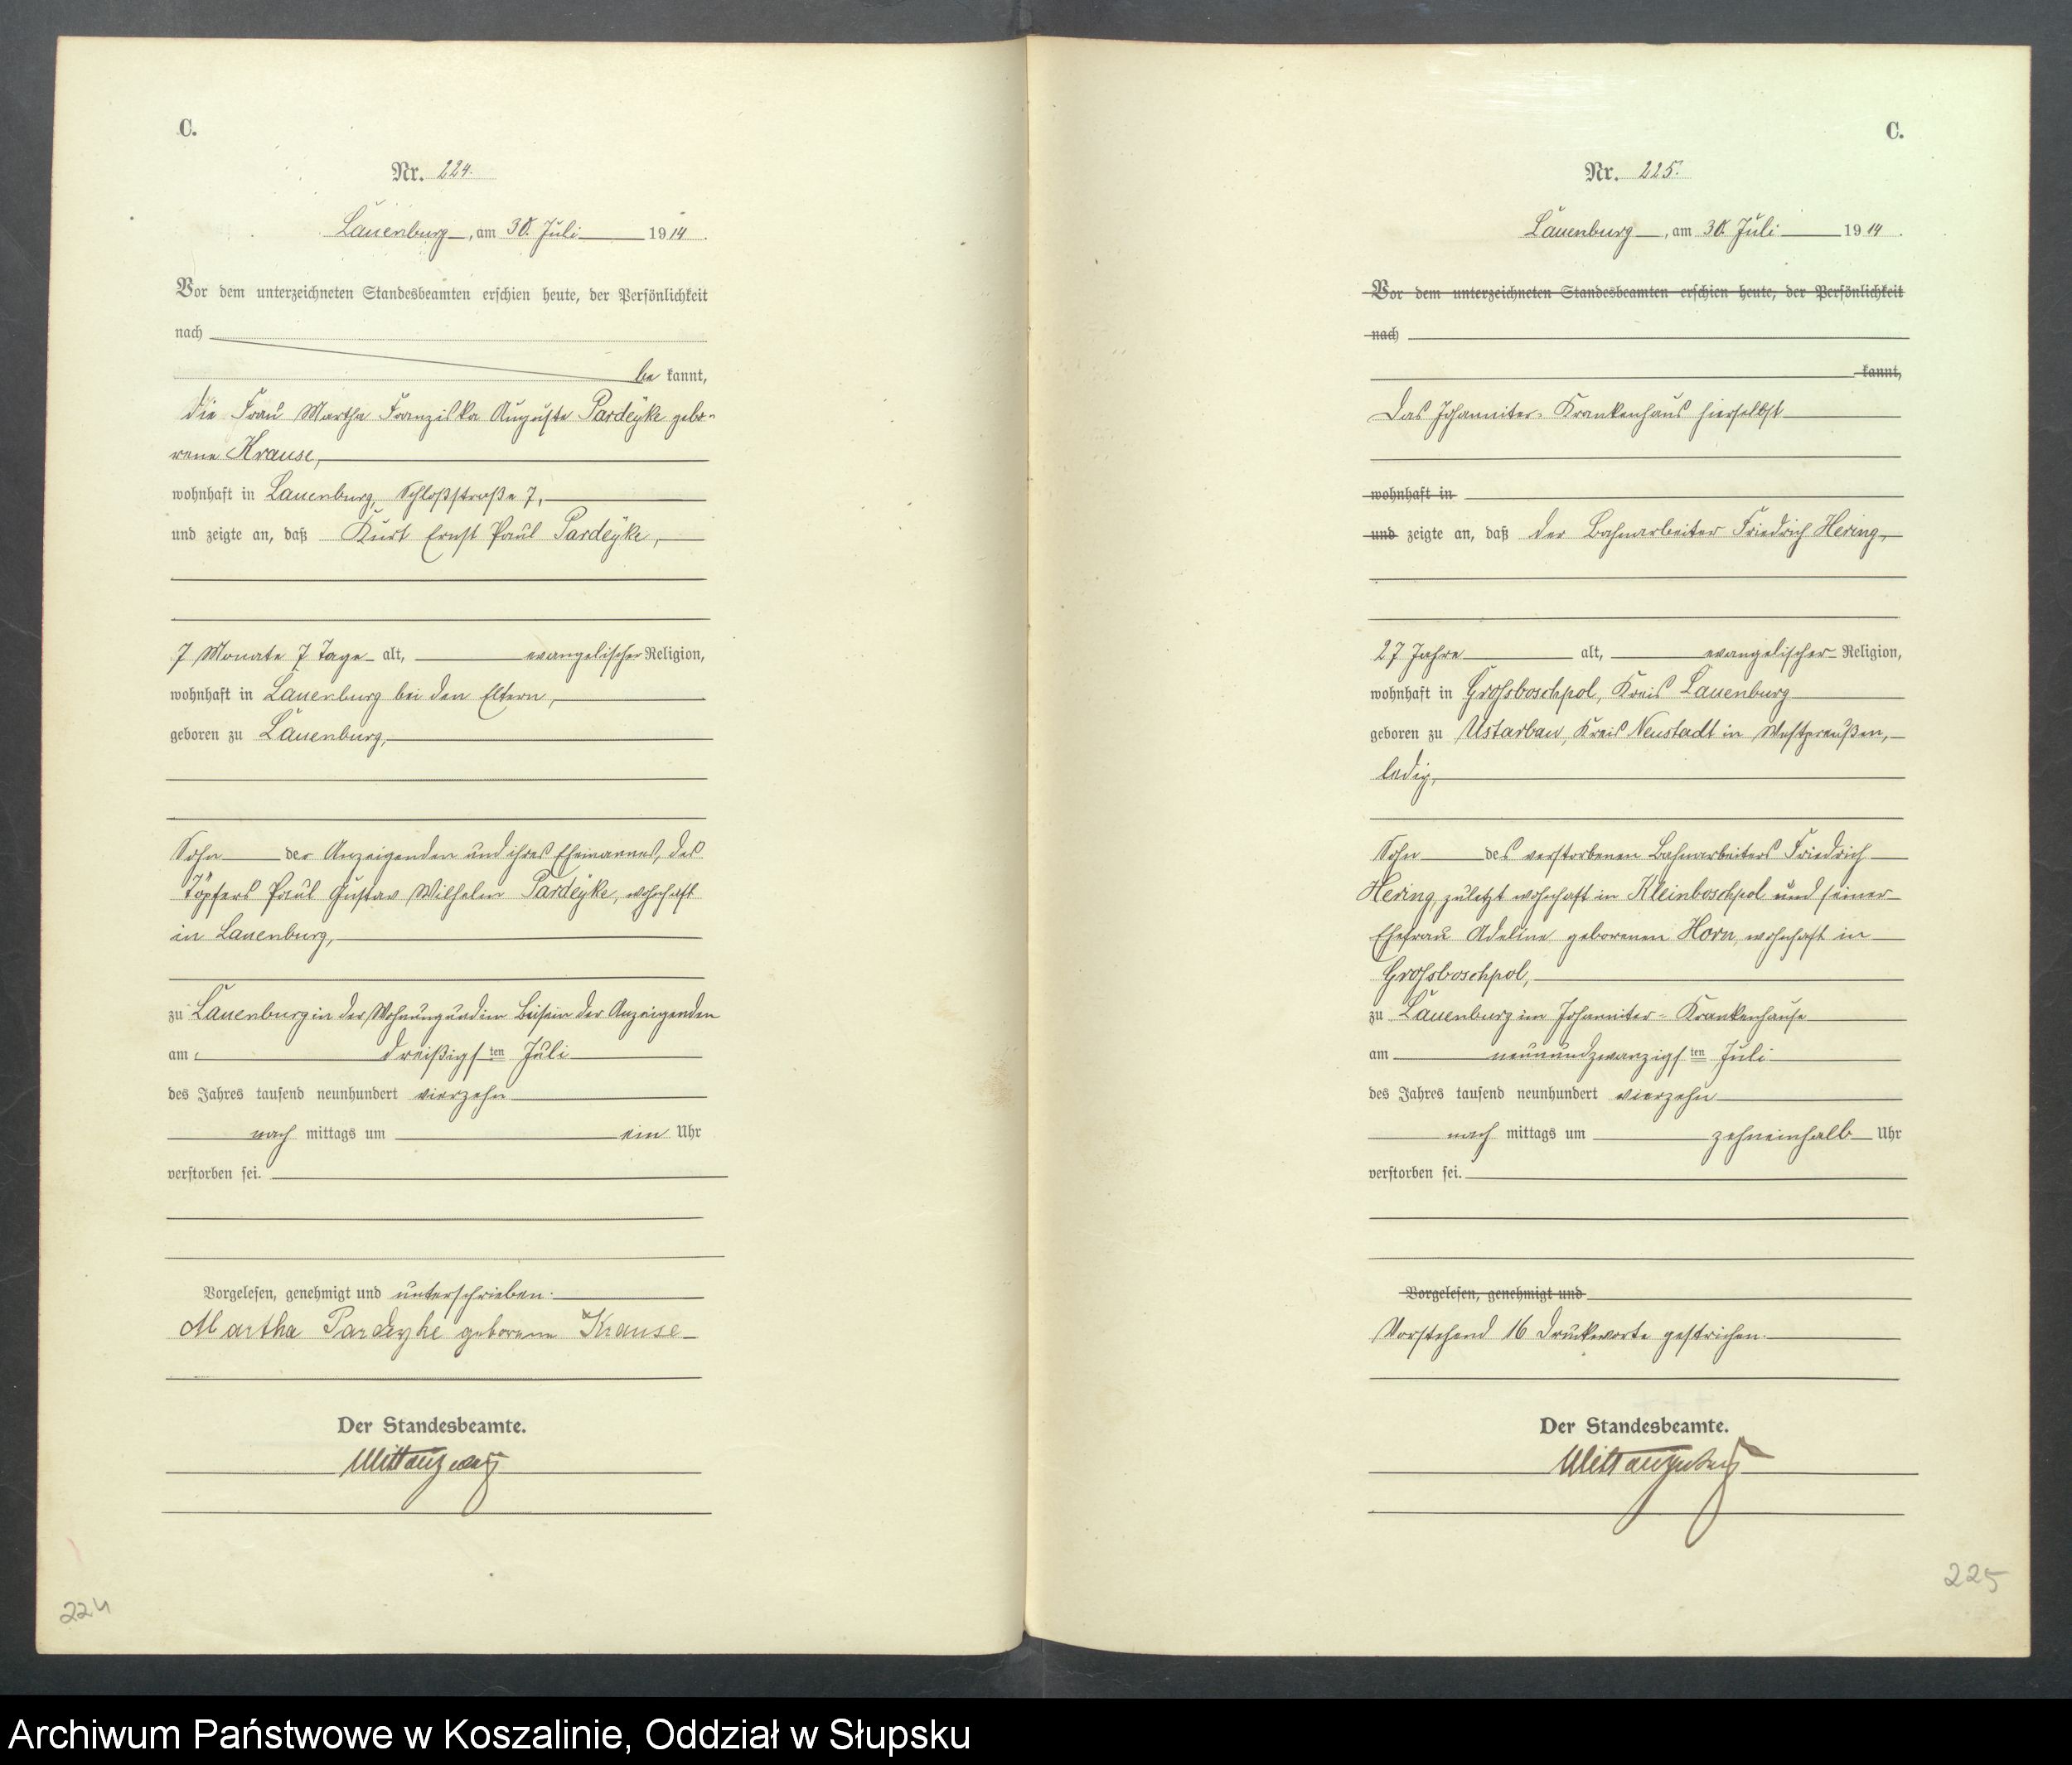 C.
Nr. 224.
Lauenburg, am 30. Juli 1914.
Vor dem unterzeichneten Standesbeamten erschien heute, der Persönlichkeit
nach
be kannt,
die Frau Martha Franziska Auguste Pardeyke gebo-
rene Krause,
wohnhaft in Lauenburg, Schloßstraße 7,
und zeigte an, daß Kurt Ernst Paul Pardeyke,
7 Monate 7 Tage alt, evangelischer Religion,
wohnhaft in Lauenburg bei den Eltern,
geboren zu Lauenburg,
Sohn der Anzeigenden und ihres Ehemannes, des
Töpfers Paul Gustav Wilhelm Pardeyke, wohnhaft
in Lauenburg,
zu Lauenburg in der Wohnung und im Beisein der Anzeigenden
am dreißigsten Juli
des Jahres tausend neunhundert vierzehn
nach mittags um ein Uhr
verstorben sei.
Vorgelesen, genehmigt und unterschrieben.
Martha Pardeyke geborene Krause
Der Standesbeamte.
224
C.
Nr. 225.
Lauenburg, am 30. Juli 1914.
Vor dem unterzeichneten Standesbeamten erschien heute, der Persönlichkeit
nach
kannt,
Das Johanniter-Krankenhaus hierselbst
wohnhaft in
und zeigte an, daß der Bahnarbeiter Friedrich Hering,
27 Jahre alt, evangelischer Religion,
wohnhaft in Großboschpol, Kreis Lauenburg
geboren zu Ustarbau, Kreis Neustadt in Westpreußen,
ledig,
Sohn des verstorbenen Bahnarbeiters Friedrich
Hering, zuletzt wohnhaft in Kleinboschpol und seiner
Ehefrau Adeline geborenen Horn, wohnhaft in
Großboschpol,
zu Lauenburg im Johanniter-Krankenhause
am neunundzwanzigsten Juli
des Jahres tausend neunhundert vierzehn
nach mittags um zehneinhalb Uhr
verstorben sei.
Vorgelesen, genehmigt und
Vorstehend 16 Druckworte gestrichen.
Der Standesbeamte.
225
Archiwum Państwowe w Koszalinie, Oddział w Słupsku